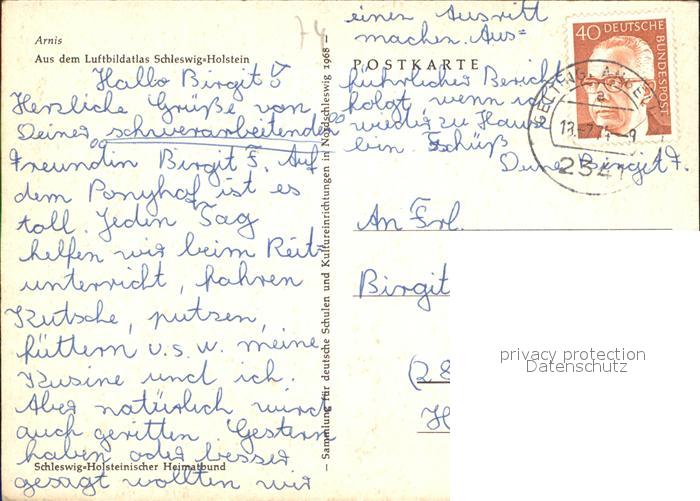 Arnis
Aus dem Luftbildatlas Schleswig-Holstein
74
Hallo Birgit!
Herzliche Grüße von
Deiner "schwerarbeitenden"
Freundin Birgit F. Auf
dem Ponyhof ist es
toll. Jeden Tag
helfen wir beim Reit-
unterricht, fahren
Kutsche, putzen,
füttern u.s.w. meine
Kusine und ich.
Aber natürlich wird
auch geritten. Gestern
haben oder besser
gesagt wollten wir
Schleswig-Holsteinischer Heimatbund
– Sammlung für deutsche Schulen und Kultureinrichtungen in Nordschleswig 1968 –
einen Ausritt
machen. Aus=
POSTKARTE
führlicher Bericht
folgt, wenn ich
wieder zu Hause
bin. Tschüß
Deine Birgit F.
40 DEUTSCHE
BUNDESPOST
a
2341
An Frl.
Birgit
(28
H
privacy protection
Datenschutz